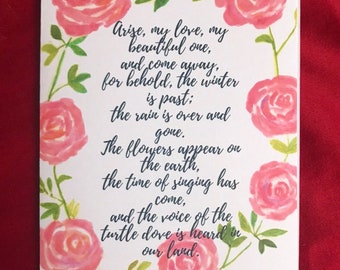 Arise, my love, my
beautiful one,
and come away,
for behold, the winter
is past;
the rain is over and
gone.
The flowers appear on
the earth,
the time of singing has
come,
and the voice of the
turtle dove is heard in
our land.